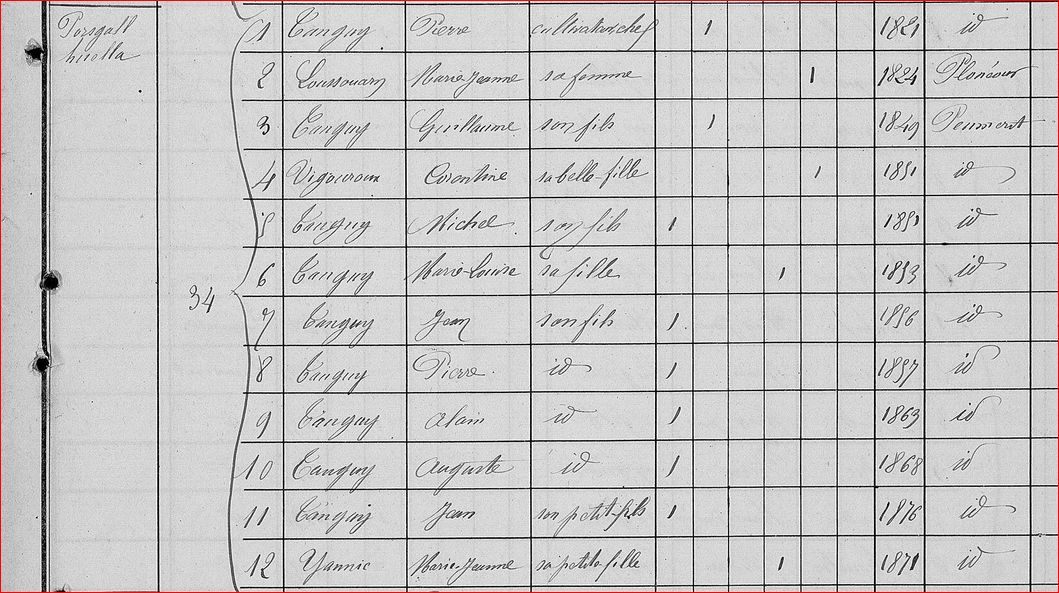 Porsgall
huella
34
1 Tanguy Pierre cultivateur chef 1 1821 id
2 Loussouarn Marie-Jeanne sa femme 1 1824 Plonéour
3 Tanguy Guillaume son fils 1 1849 Peumerit
4 Vigouroux Corentine sa belle-fille 1 1851 id
5 Tanguy Michel son fils 1 1851 id
6 Tanguy Marie-Louise sa fille 1 1853 id
7 Tanguy Jean son fils 1 1856 id
8 Tanguy Pierre id 1 1857 id
9 Tanguy Alain id 1 1863 id
10 Tanguy Auguste id 1 1868 id
11 Tanguy Jean son petit-fils 1 1876 id
12 Yannic Marie-Jeanne sa petite-fille 1 1871 id